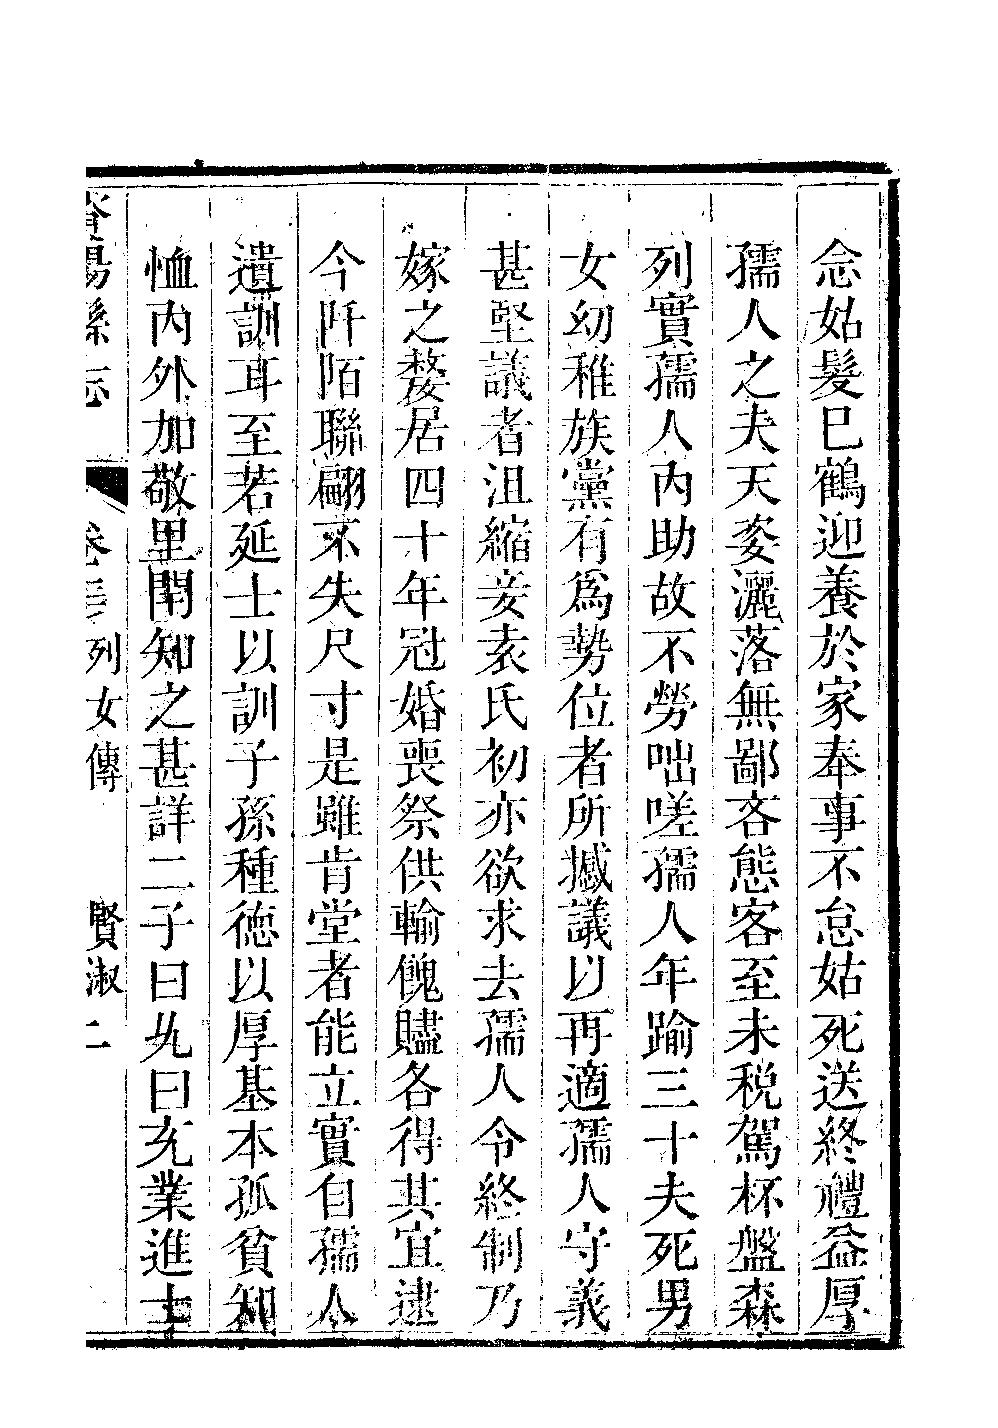 念姑髮巳鶴迎養於家奉事不怠姑死送終禮益厚
孺人之夫天姿灑落無鄙吝態客至未税駕杯盤森
列實孺人内助故不勞咄嗟孺人年踰三十夫死男
女幼稚族黨有為勢位者所撼議以再適孺人守義
甚堅議者沮縮妾袁氏初亦欲求去孺人令終制乃
嫁之嫠居四十年冠婚喪祭供輸餽贐各得其宜逮
今阡陌聯翩不失尺寸是雖肯堂者能立實自孺人
遺訓耳至若延士以訓子孫種德以厚基本孤貧知
恤内外加敬里閈知之甚詳二子曰九曰充業進士
縣志 卷三 列女傳 賢淑 二